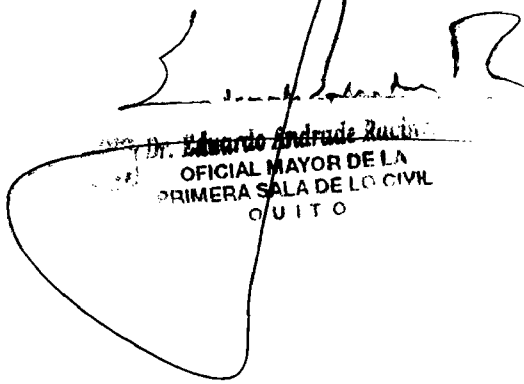 Dr. Eduardo Andrade Racin
OFICIAL MAYOR DE LA
PRIMERA SALA DE LO CIVIL
QUITO